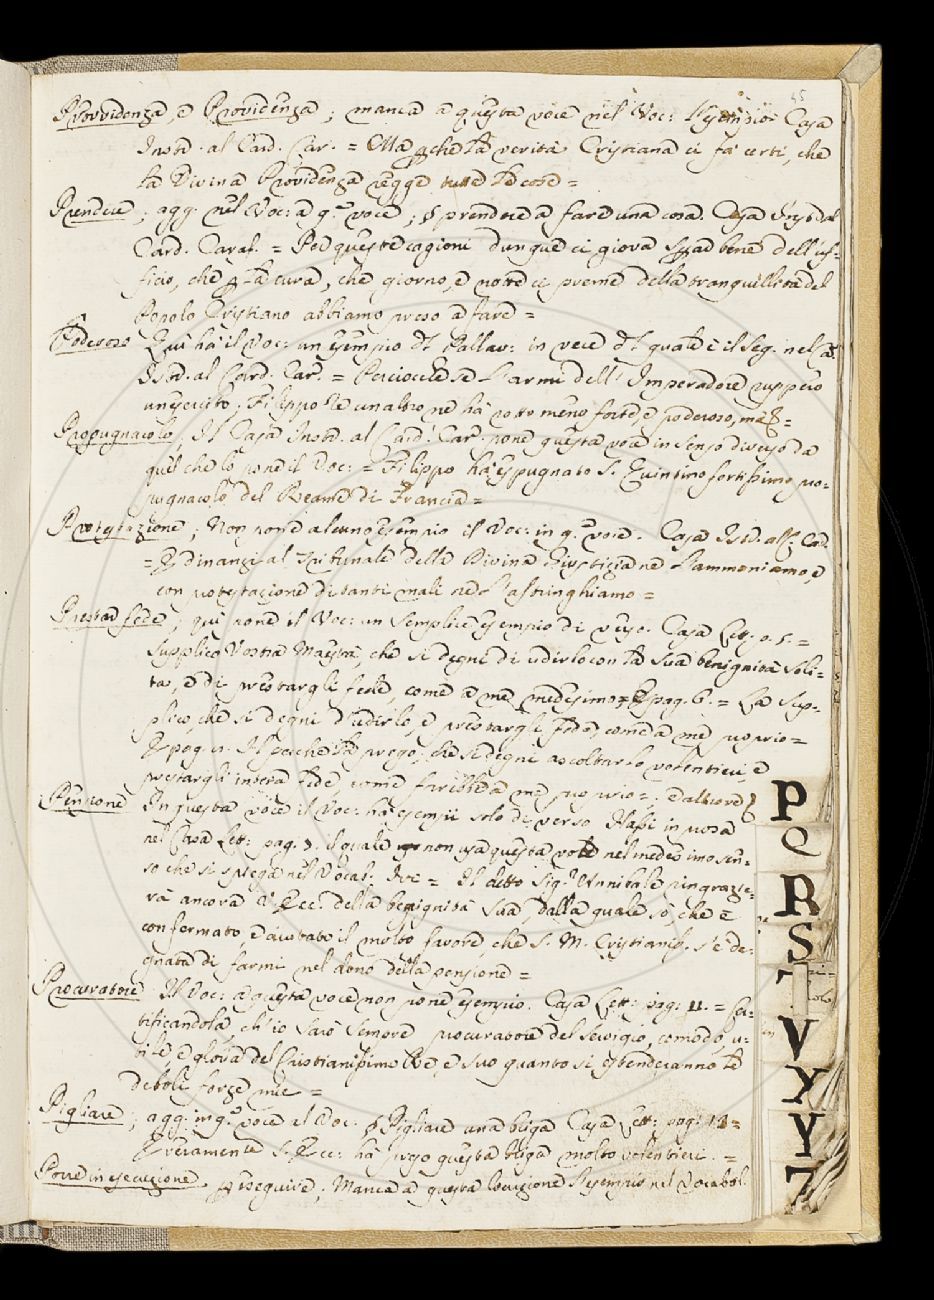 45
Provvidenza, e Providenza; manca a questa voce nel Voc: l'esempio. Casa
Instr. al Card. Car. = Ma perche la verità Cristiana ci fà certi, che
la Divina Providenza regge tutte le cose =
Prendere; agg. nel Voc: a q.ª voce; prendere a fare una cosa. Casa Instr. al
Card. Caraf. = Per queste cagioni dunque ci giova sperar bene dell'uf-
ficio, che per la cura, che giorno, e notte ci preme della tranquillità del
Popolo Cristiano abbiamo preso a fare =
Poderoso Quì hà il Voc: un esempio di Pallav: in vece del quale è il seg. nel C.
Instr. al Card. Car. = Perciocche se l'armi dell'Imperadore ruppero
un esercito, Filippo le un altro ne hà rotto meno forte, e poderoso, ma
Propugnacolo, Il Casa Instr. al Card. Car. pone questa voce in senso diverso da
quel che lo pone il Voc: = Filippo hà espugnato S. Quintino fortissimo pro-
pugnacolo del Reame di Francia =
Protestazione; Non pone alcuno esempio il Voc: in q.ª voce. Casa Instr. al C. Car.
= Et dinanzi al Tribunale della Divina Giustizia ne l'ammoniamo, e
con protestazione di tanti mali ne l'astringhiamo =
Prestar fede; quì pone il Voc: un semplice esempio di verso. Casa Lett. p. 5. =
supplico Vostra Maestà, che si degni di udirlo con la sua benignità soli-
ta, e di prestargli fede, come a me medesimo = Et pag. 6. = La sup-
plico, che si degni d'udirlo, e prestargli fede, come a me proprio =
Et pag. 11. Il perche la prego, che si degni ascoltarlo volentieri, e
prestargli intera fede, come farebbe a me proprio =, e altrove
Pensione In questa voce il Voc: hà esempii solo di verso Hassi in prosa
nel Casa Lett: pag. 3. il quale non usa questa voce nel medesimo sen-
so che si spiega nel Vocab. Ivi = Il detto Sig.r Annibale ringrazie-
rà ancora V. Ecc. della benignità sua, dalla quale sò, che è
confermato, e aiutato il molto favore, che S. M. Cristianiss. s'è de-
gnata di farmi nel dono della pensione =
Procuratore Il Voc: a questa voce non pone esempio. Casa Lett: pag: 11. = Cer-
tificandola ch'io sarò sempre procuratore del servigio, comodo, u-
tile e gloria del Cristianissimo Re, e suo quanto si estenderanno le
deboli forze mie =
Pigliare; agg. in q.ª voce al Voc: Pigliare una briga Casa Lett: pag: 12 =
E veramente S. Ecc: hà preso questa briga molto volentieri. =
Porre in esecuzione. per eseguire; Manca a questa locuzione l'esempio nel Vocabol.
P
Q
R
S
T
V
X
Y
Z